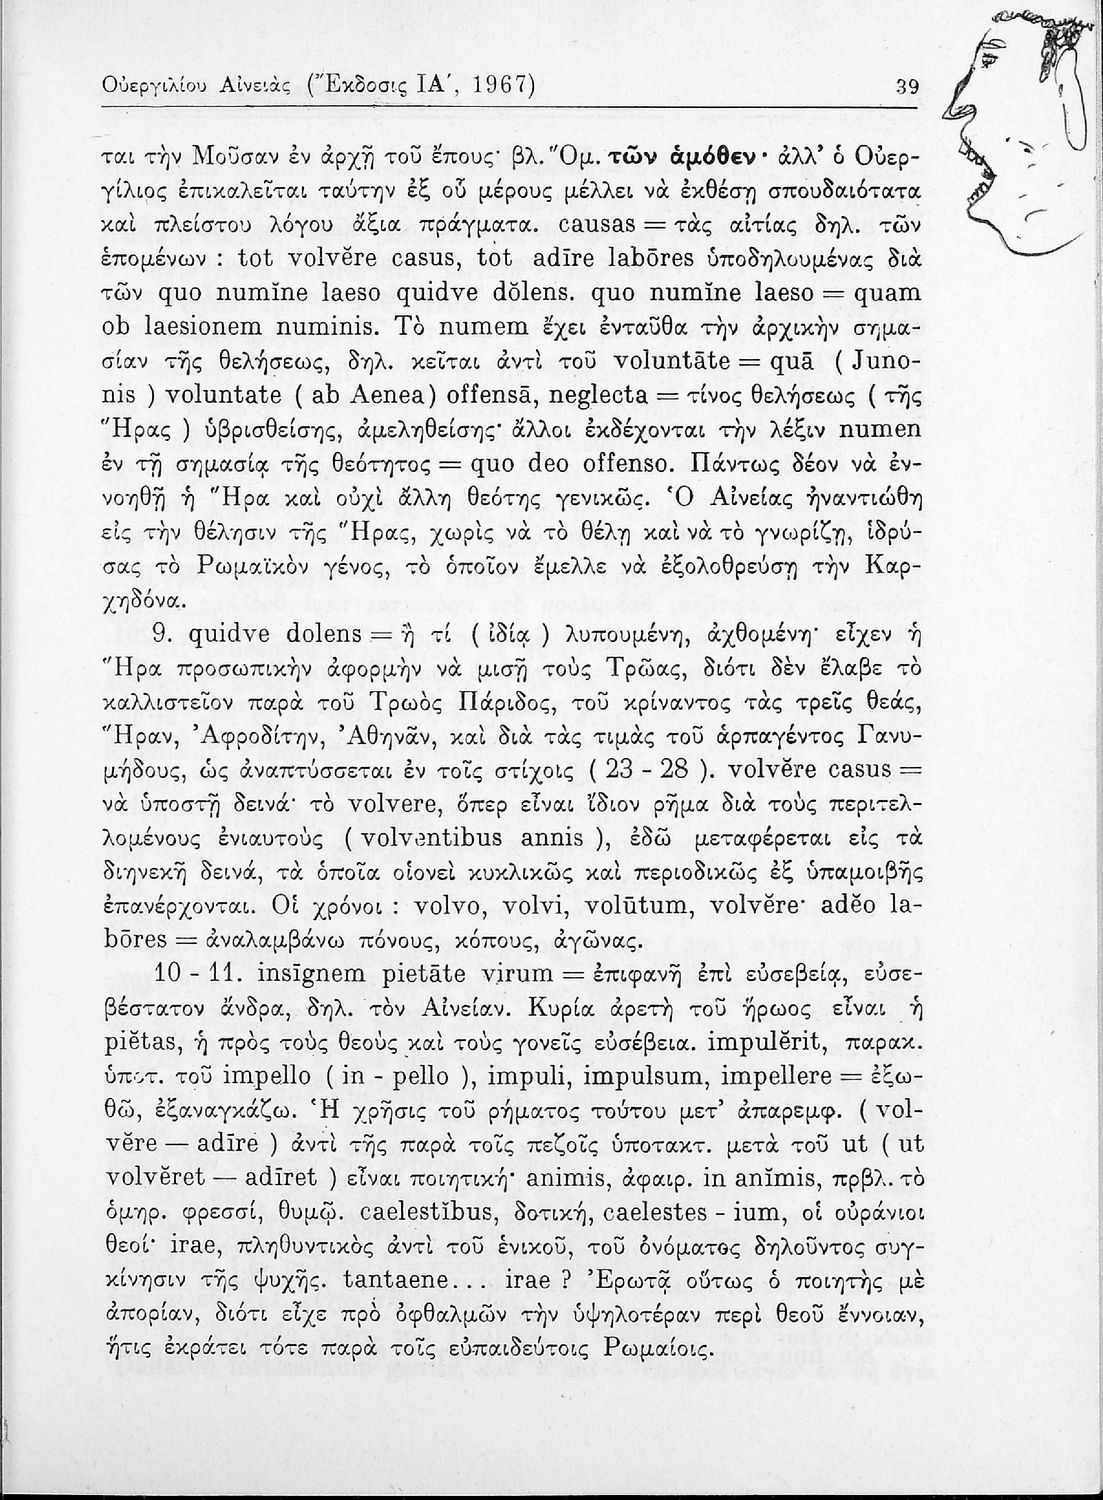 Οὐεργιλίου Αἰνειὰς (Ἔκδοσις ΙΑ΄, 1967) 39
ται τὴν Μοῦσαν ἐν ἀρχῇ τοῦ ἔπους· βλ. Ὅμ. τῶν ἁμόθεν· ἀλλ’ ὁ Οὐερ-
γίλιος ἐπικαλεῖται ταύτην ἐξ οὗ μέρους μέλλει νὰ ἐκθέσῃ σπουδαιότατα
καὶ πλείστου λόγου ἄξια πράγματα. causas = τὰς αἰτίας δηλ. τῶν
ἑπομένων : tot volvĕre casus, tot adīre labōres ὑποδηλουμένας διὰ
τῶν quo numĭne laeso quidve dŏlens. quo numĭne laeso = quam
ob laesionem numinis. Τὸ numem ἔχει ἐνταῦθα τὴν ἀρχικὴν σημα-
σίαν τῆς θελήσεως, δηλ. κεῖται ἀντὶ τοῦ voluntāte = quā ( Juno-
nis ) voluntate ( ab Aenea) offensā, neglecta = τίνος θελήσεως ( τῆς
Ἥρας ) ὑβρισθείσης, ἀμεληθείσης· ἄλλοι ἐκδέχονται τὴν λέξιν numen
ἐν τῇ σημασίᾳ τῆς θεότητος = quo deo offenso. Πάντως δέον νὰ ἐν-
νοηθῇ ἡ Ἥρα καὶ οὐχὶ ἄλλη θεότης γενικῶς. Ὁ Αἰνείας ἠναντιώθη
εἰς τὴν θέλησιν τῆς Ἥρας, χωρὶς νὰ τὸ θέλῃ καὶ νὰ τὸ γνωρίζῃ, ἱδρύ-
σας τὸ Ρωμαϊκὸν γένος, τὸ ὁποῖον ἔμελλε νὰ ἐξολοθρεύσῃ τὴν Καρ-
χηδόνα.
9. quidve dolens = ἢ τί ( ἰδίᾳ ) λυπουμένη, ἀχθομένη· εἶχεν ἡ
Ἥρα προσωπικὴν ἀφορμὴν νὰ μισῇ τοὺς Τρῶας, διότι δὲν ἔλαβε τὸ
καλλιστεῖον παρὰ τοῦ Τρωὸς Πάριδος, τοῦ κρίναντος τὰς τρεῖς θεάς,
Ἥραν, Ἀφροδίτην, Ἀθηνᾶν, καὶ διὰ τὰς τιμὰς τοῦ ἁρπαγέντος Γανυ-
μήδους, ὡς ἀναπτύσσεται ἐν τοῖς στίχοις ( 23 - 28 ). volvĕre casus =
νὰ ὑποστῇ δεινά· τὸ volvere, ὅπερ εἶναι ἴδιον ρῆμα διὰ τοὺς περιτελ-
λομένους ἐνιαυτοὺς ( volventibus annis ), ἐδῶ μεταφέρεται εἰς τὰ
διηνεκῆ δεινά, τὰ ὁποῖα οἱονεὶ κυκλικῶς καὶ περιοδικῶς ἐξ ὑπαμοιβῆς
ἐπανέρχονται. Οἱ χρόνοι : volvo, volvi, volūtum, volvĕre· adĕo la-
bōres = ἀναλαμβάνω πόνους, κόπους, ἀγῶνας.
10 - 11. insīgnem pietāte virum = ἐπιφανῆ ἐπὶ εὐσεβείᾳ, εὐσε-
βέστατον ἄνδρα, δηλ. τὸν Αἰνείαν. Κυρία ἀρετὴ τοῦ ἥρωος εἶναι ἡ
piĕtas, ἡ πρὸς τοὺς θεοὺς καὶ τοὺς γονεῖς εὐσέβεια. impulĕrit, παρακ.
ὑποτ. τοῦ impello ( in - pello ), impuli, impulsum, impellere = ἐξω-
θῶ, ἐξαναγκάζω. Ἡ χρῆσις τοῦ ρήματος τούτου μετ’ ἀπαρεμφ. ( vol-
vĕre — adīre ) ἀντὶ τῆς παρὰ τοῖς πεζοῖς ὑποτακτ. μετὰ τοῦ ut ( ut
volvĕret — adīret ) εἶναι ποιητική· animis, ἀφαιρ. in anĭmis, πρβλ. τὸ
ὁμηρ. φρεσσί, θυμῷ. caelestĭbus, δοτική, caelestes - ium, οἱ οὐράνιοι
θεοί· irae, πληθυντικὸς ἀντὶ τοῦ ἑνικοῦ, τοῦ ὀνόματος δηλοῦντος συγ-
κίνησιν τῆς ψυχῆς. tantaene... irae ? Ἐρωτᾷ οὕτως ὁ ποιητὴς μὲ
ἀπορίαν, διότι εἶχε πρὸ ὀφθαλμῶν τὴν ὑψηλοτέραν περὶ θεοῦ ἔννοιαν,
ἥτις ἐκράτει τότε παρὰ τοῖς εὐπαιδεύτοις Ρωμαίοις.